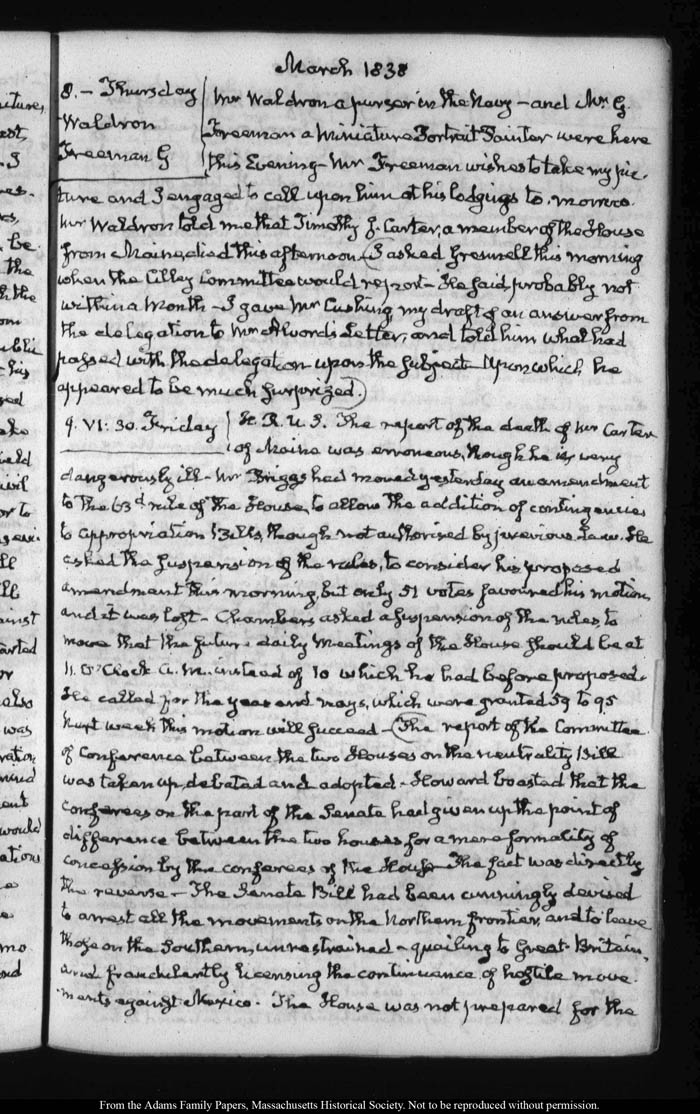 March 1838
8. - Thursday
Waldron
Freeman G
Mr Waldron a purser in the Navy - and Mr G.
Freeman a Miniature Portrait Painter were here
this Evening - Mr Freeman wishes to take my pic-
ture and I engaged to call upon him at his lodgings to-morrow.
Mr Waldron told me that Timothy J. Carter, a member of the House
from Maine, died this afternoon (I asked Grennell this morning
when the Cilley Committee would report - He said probably not
within a Month - I gave Mr Cushing my draft of an answer from
the delegation to Mr Alvord's Letter, and told him what had
passed with the delegation upon the subject - Upon which he
appeared to be much surprized.)
9. VI: 30. Friday
H. R. U. S. The report of the death of Mr Carter
of Maine was erroneous, though he is very
dangerously ill - Mr Briggs had moved yesterday an amendment
to the 63d rule of the House, to allow the addition of contingencies
to appropriation Bills, though not authorised by previous Law. He
asked the suspension of the rules, to consider his proposed
amendment this morning, but only 51 votes favoured his motion,
and it was lost - Chambers asked a suspension of the rules, to
move that the future daily meetings of the House should be at
11. O'Clock A. M. instead of 10 which he had before proposed.
He called for the yeas and nays, which were granted 59 to 95
next week this motion will succeed - (The report of the Committee
of Conference between the two Houses on the neutrality Bill
was taken up debated and adopted - Howard boasted that the
conferees on the part of the Senate had given up the point of
difference between the two houses for a mere formality of
concession by the conferees of the House - The fact was directly
the reverse - The Senate Bill had been cunningly devised
to arrest all the movements on the Northern frontier, and to leave
those on the Southern, unrestrained - quailing to Great-Britain,
and fraudulently licensing the continuance of hostile move-
ments against Mexico. The House was not prepared for the
From the Adams Family Papers, Massachusetts Historical Society. Not to be reproduced without permission.